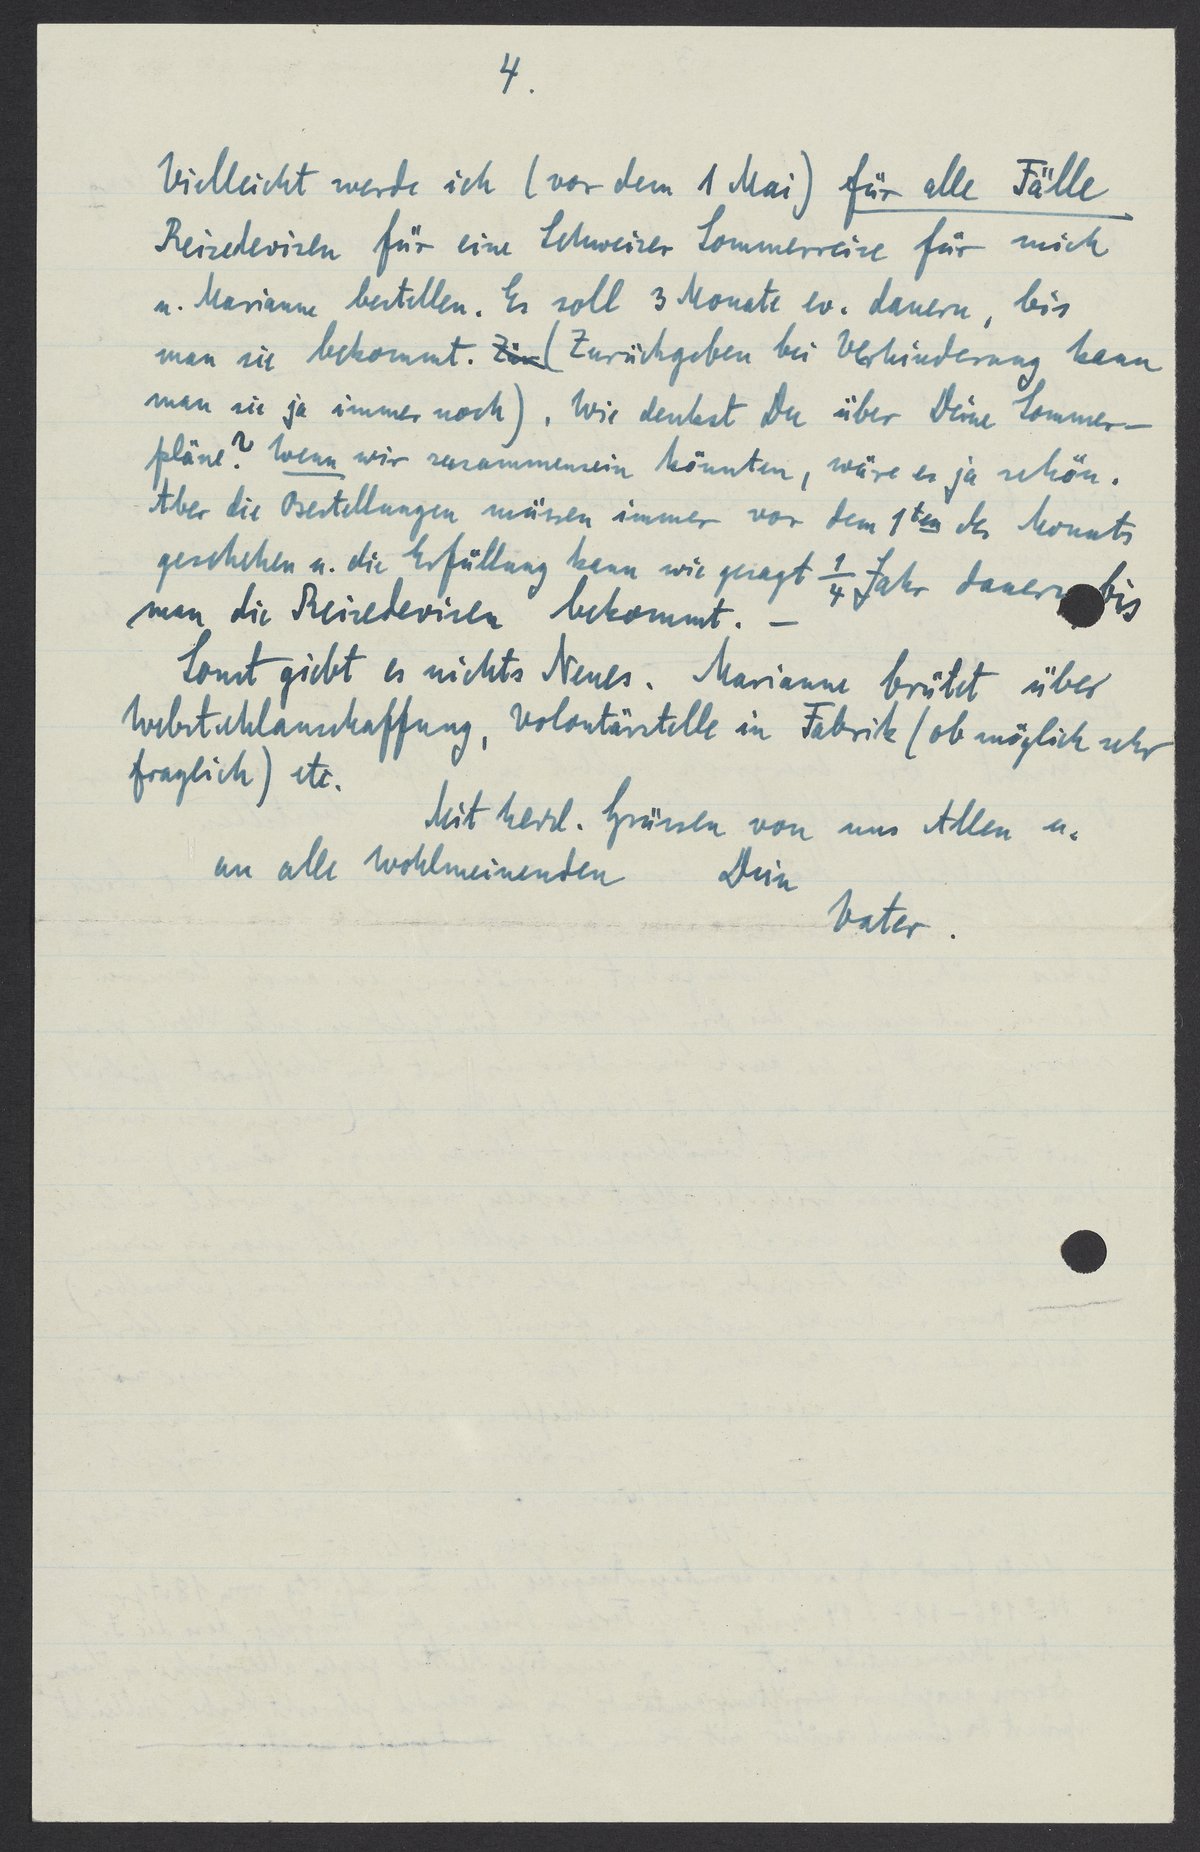 4.
Vielleicht werde ich (vor dem 1 Mai) für alle Fälle
Reisedevisen für eine Schweizer Sommerreise für mich
u. Marianne bestellen. Es soll 3 Monate ev. dauern, bis
man sie bekommt. Zur (Zurückgeben bei Verhinderung kann
man sie ja immer noch). Wie denkst Du über Deine Sommer-
pläne? Wenn wir zusammensein könnten, wäre es ja schön.
Aber die Bestellungen müssen immer vor dem 1ten des Monats
geschehen u. die Erfüllung kann wie gesagt 1/4 Jahr dauern bis
man die Reisedevisen bekommt. —
Sonst giebt es nichts Neues. Marianne brütet über
Webstuhlanschaffung, Volontärstelle in Fabrik (ob möglich sehr
fraglich) etc.
Mit herzl. Grüssen von uns Allen u.
an alle Wohlmeinenden Dein
Vater.